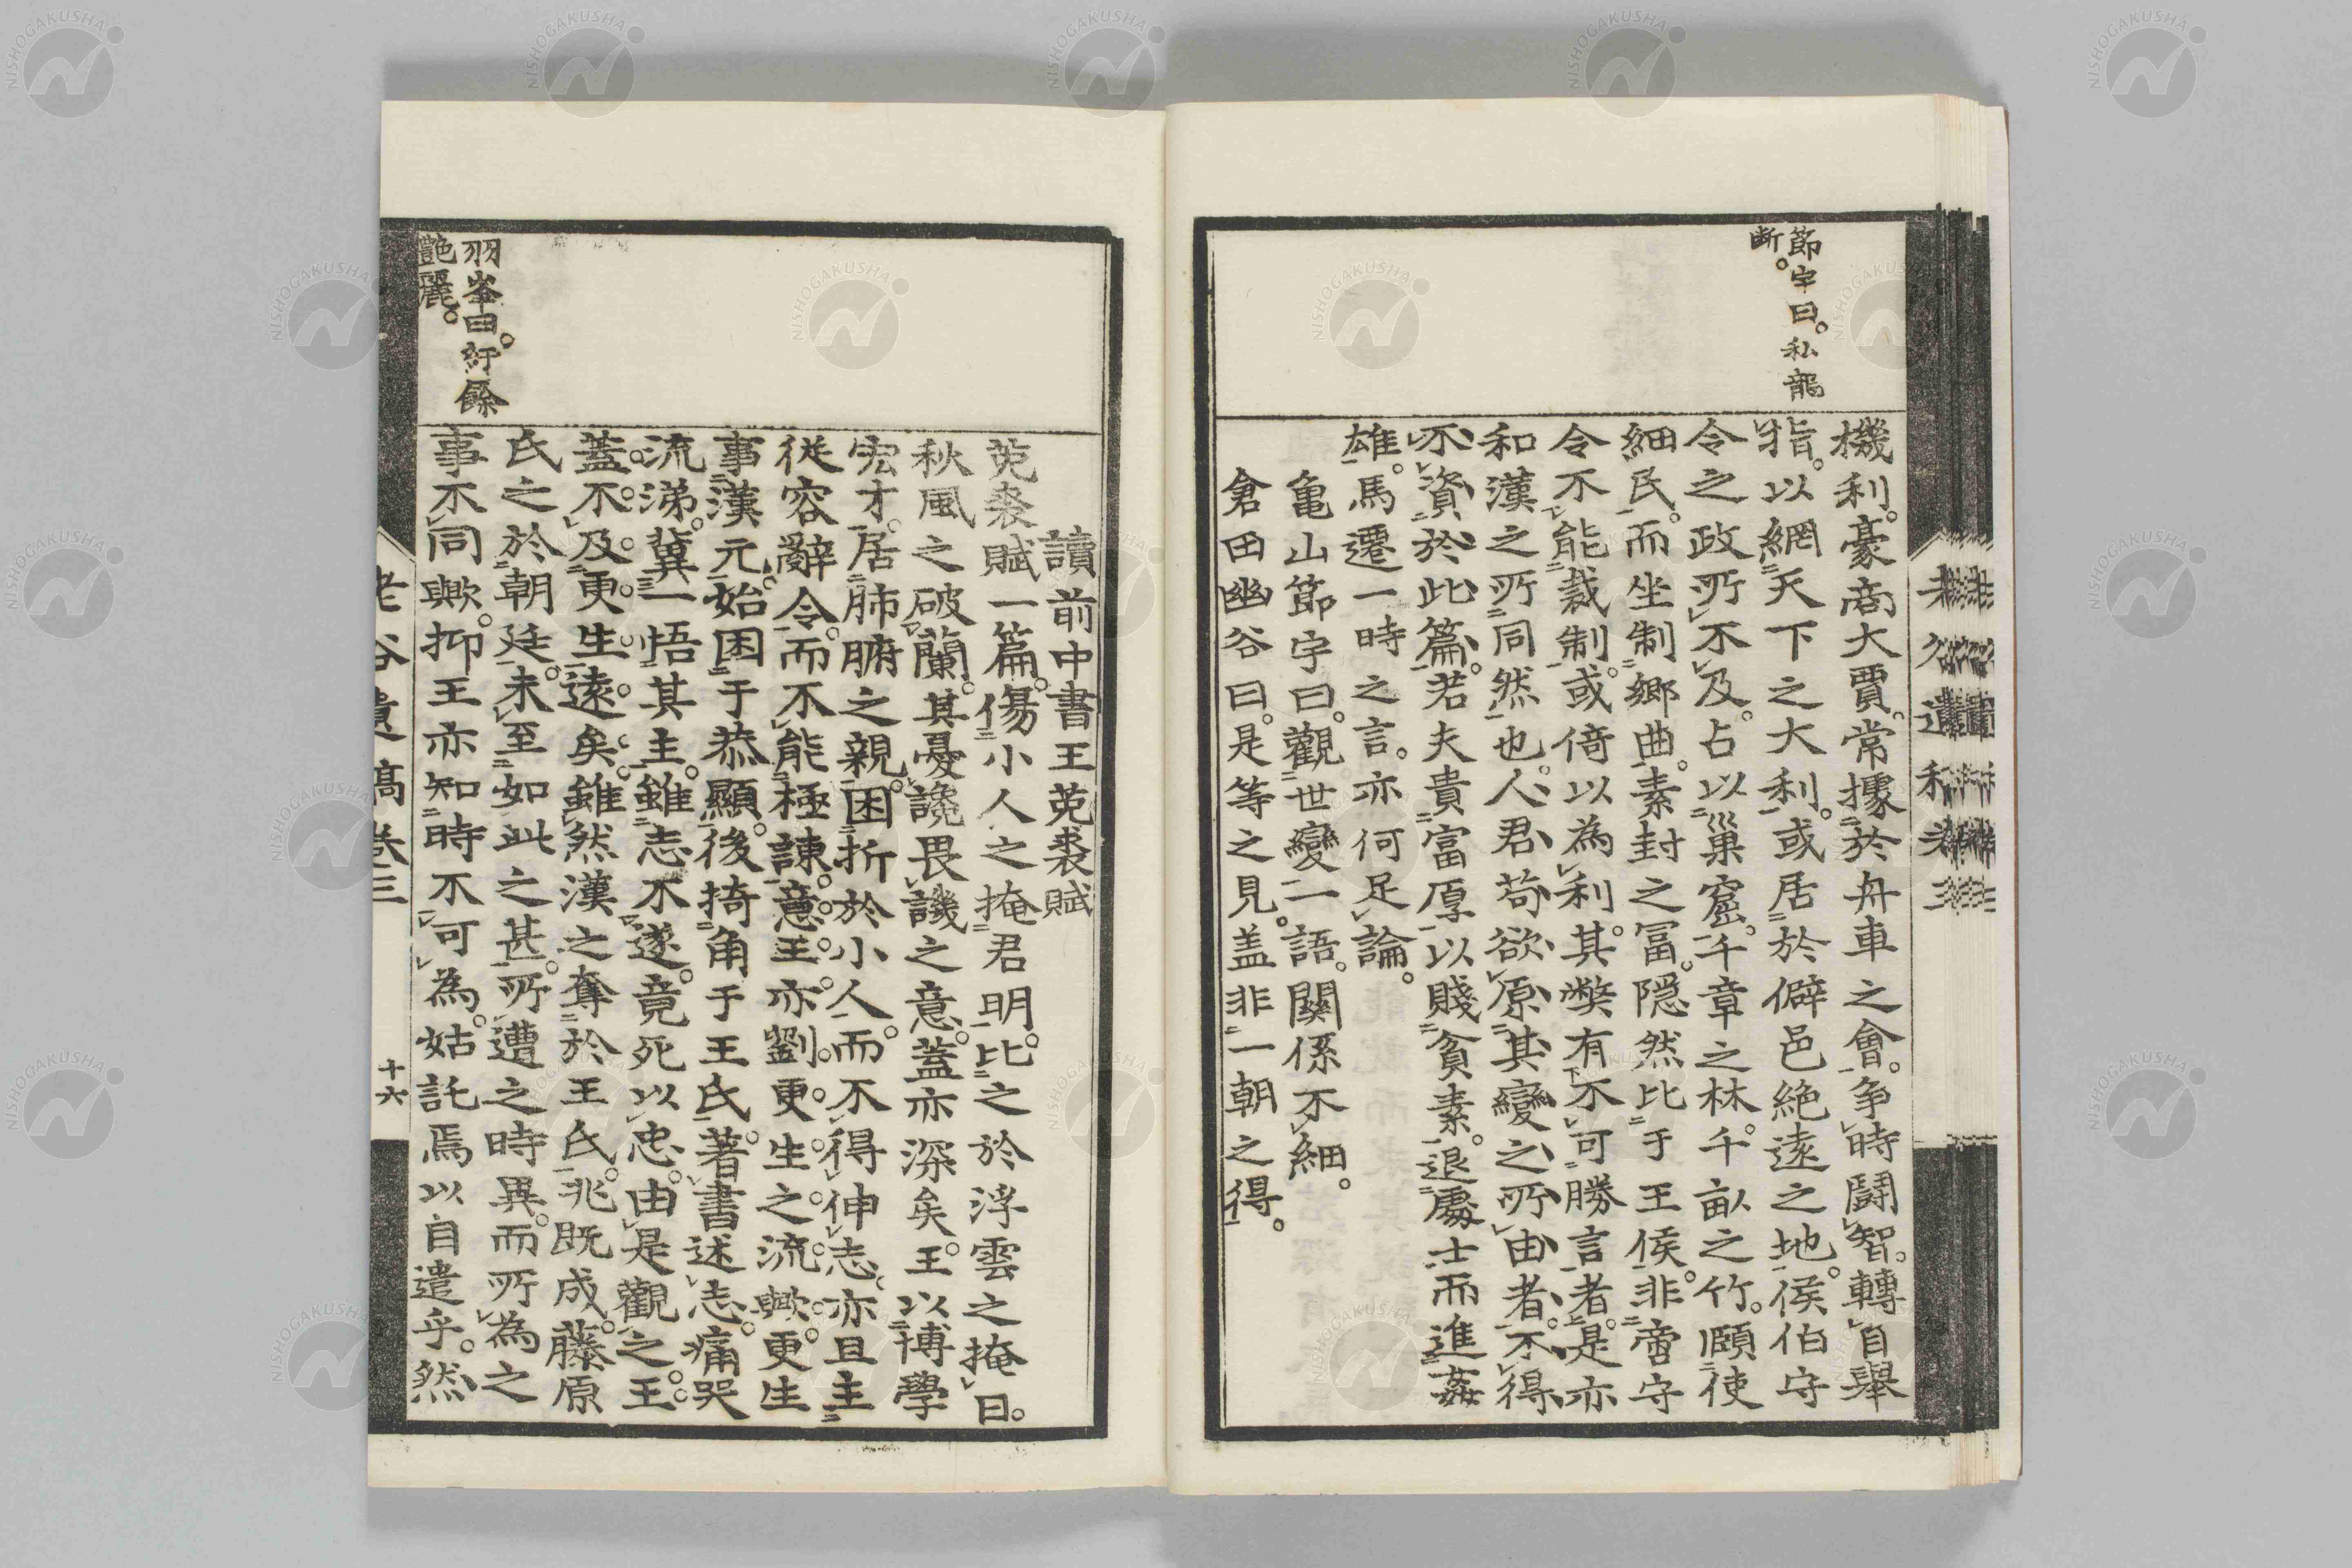 節宇曰。私龍
断。
機利。豪商大賈。常據於舟車之會。争時鬪智。轉自舉
指。以網天下之大利。或居於僻邑絶遠之地。侯伯守
令之政所不及。占以巢窟。千章之林。千畝之竹。頤使
細民。而坐制郷曲。素封之冨。隠然比于王侯。非啻守
令不能裁制。或倚以為利。其弊有不可勝言者。是亦
和漢之所同然也。人君苟欲原其變之所由者。不得
不資於此篇。若夫貴富厚以賤貧素。退處士而進姦
雄。馬遷一時之言。亦何足論。
亀山節宇曰。觀世變一語。關係不細。
倉田幽谷曰。是等之見。盖非一朝之得。
讀前中書王莵裘賦
莵裘賦一篇。傷小人之掩君明。比之於浮雲之掩日。
秋風之破蘭。其憂讒畏譏之意。蓋亦深矣。王以博學
宏才。居肺腑之親。困折於小人。而不得伸志。亦且主
従容辭令。而不能極諫。意王亦劉更生之流歟。更生
事漢元。始困于恭顯。後掎角于王氏。著書述志。痛哭
流涕。冀一悟其主。雖志不遂。竟死以忠。由是觀之。王
蓋不及更生遠矣。雖然漢之奪於王氏。兆既成。藤原
氏之於朝廷。未至如此之甚。所遭之時異。而所為之
事不同歟。抑王亦知時不可為。姑託焉以自遣乎。然
羽峯曰。紆餘
艶麗。
老谷遺稿卷三
十六